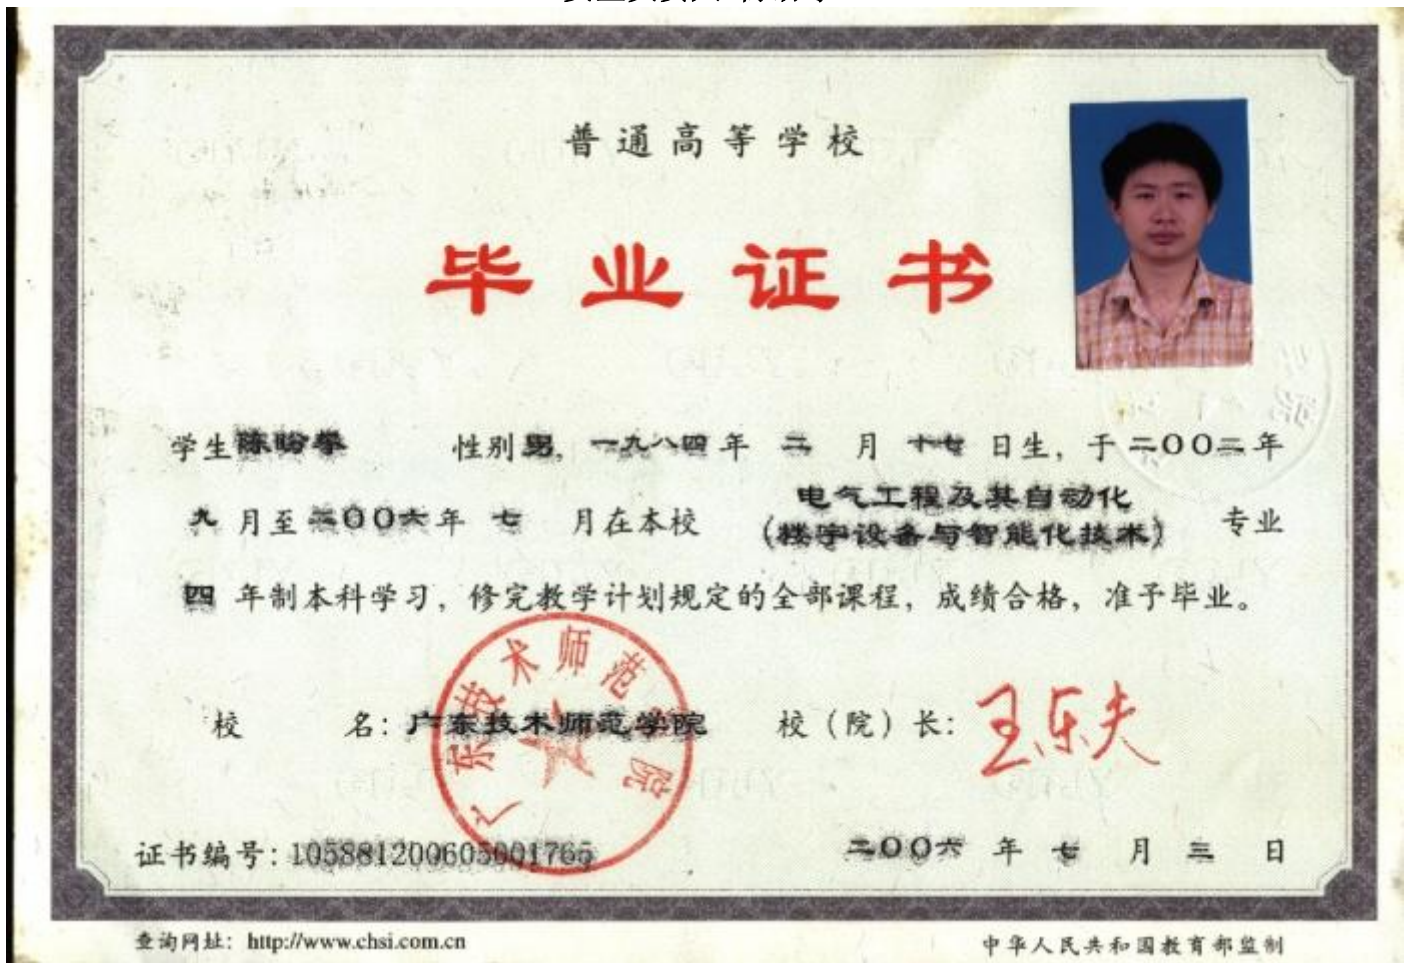 普通高等学校
毕业证书
学生陈 性别男，一九八四年 二 月 十七 日生，于二〇〇二年
九 月至二〇〇六年 七 月在本校 电气工程及其自动化
(楼宇设备与智能化技术) 专业
四 年制本科学习，修完教学计划规定的全部课程，成绩合格，准予毕业。
广东技术师范学院
校 名：广东技术师范学院 校（院）长：王乐夫
证书编号：105881200605001765 二〇〇六 年 七 月 三 日
查询网址：http://www.chsi.com.cn 中华人民共和国教育部监制